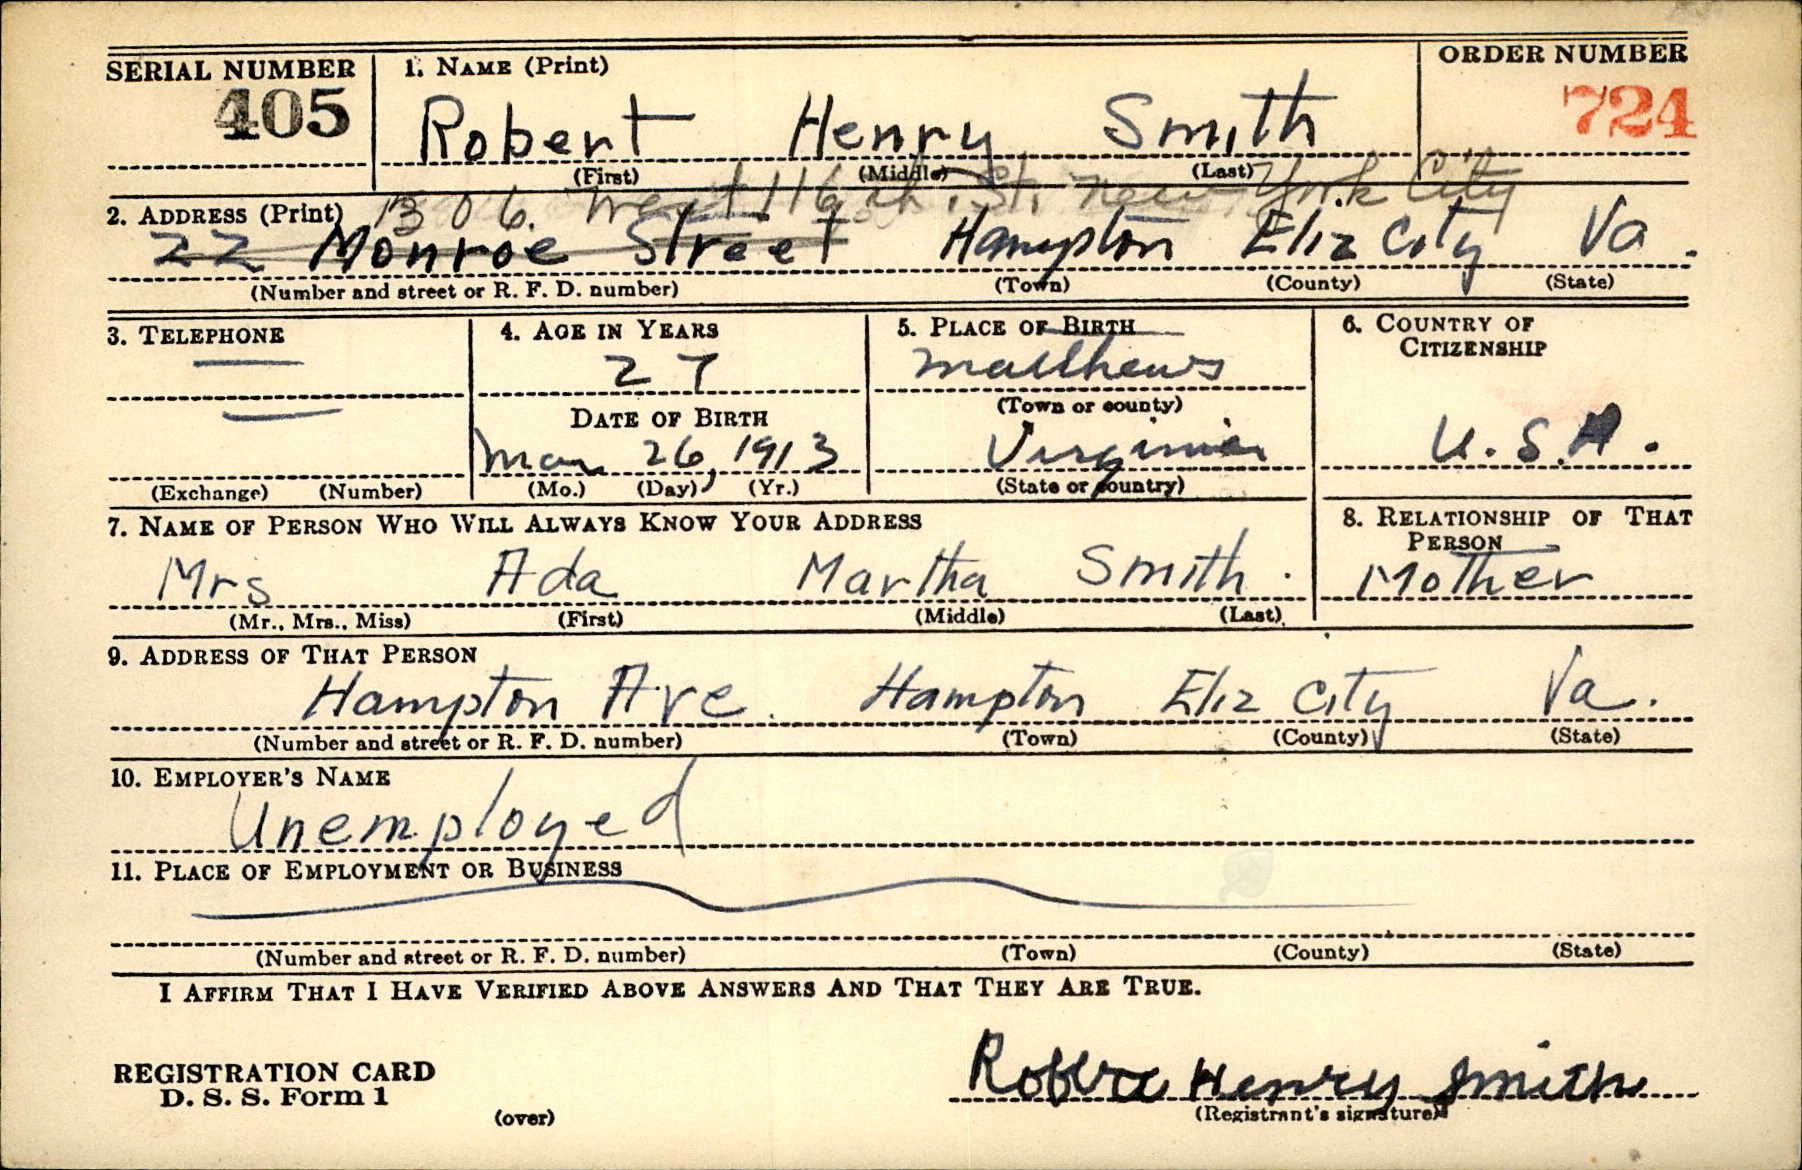 SERIAL NUMBER 1. NAME (Print) ORDER NUMBER
405 Robert Henry Smith 724
(First) (Middle) (Last)
306 West 116th St. New York City
2. ADDRESS (Print)
22 Monroe Street Hampton Eliz City Va.
(Number and street or R. F. D. number) (Town) (County) (State)
3. TELEPHONE 4. AGE IN YEARS 5. PLACE OF BIRTH 6. COUNTRY OF
CITIZENSHIP
27 Matthews
(Town or county)
DATE OF BIRTH
Mar 26, 1913 Virginia U.S.A.
(Exchange) (Number) (Mo.) (Day) (Yr.) (State or country)
7. NAME OF PERSON WHO WILL ALWAYS KNOW YOUR ADDRESS 8. RELATIONSHIP OF THAT
PERSON
Mrs Ada Martha Smith. Mother
(Mr., Mrs., Miss) (First) (Middle) (Last)
9. ADDRESS OF THAT PERSON
Hampton Ave. Hampton Eliz City Va.
(Number and street or R. F. D. number) (Town) (County) (State)
10. EMPLOYER'S NAME
Unemployed
11. PLACE OF EMPLOYMENT OR BUSINESS
(Number and street or R. F. D. number) (Town) (County) (State)
I AFFIRM THAT I HAVE VERIFIED ABOVE ANSWERS AND THAT THEY ARE TRUE.
REGISTRATION CARD
D. S. S. Form 1 Robert Henry Smith
(over) (Registrant's signature)